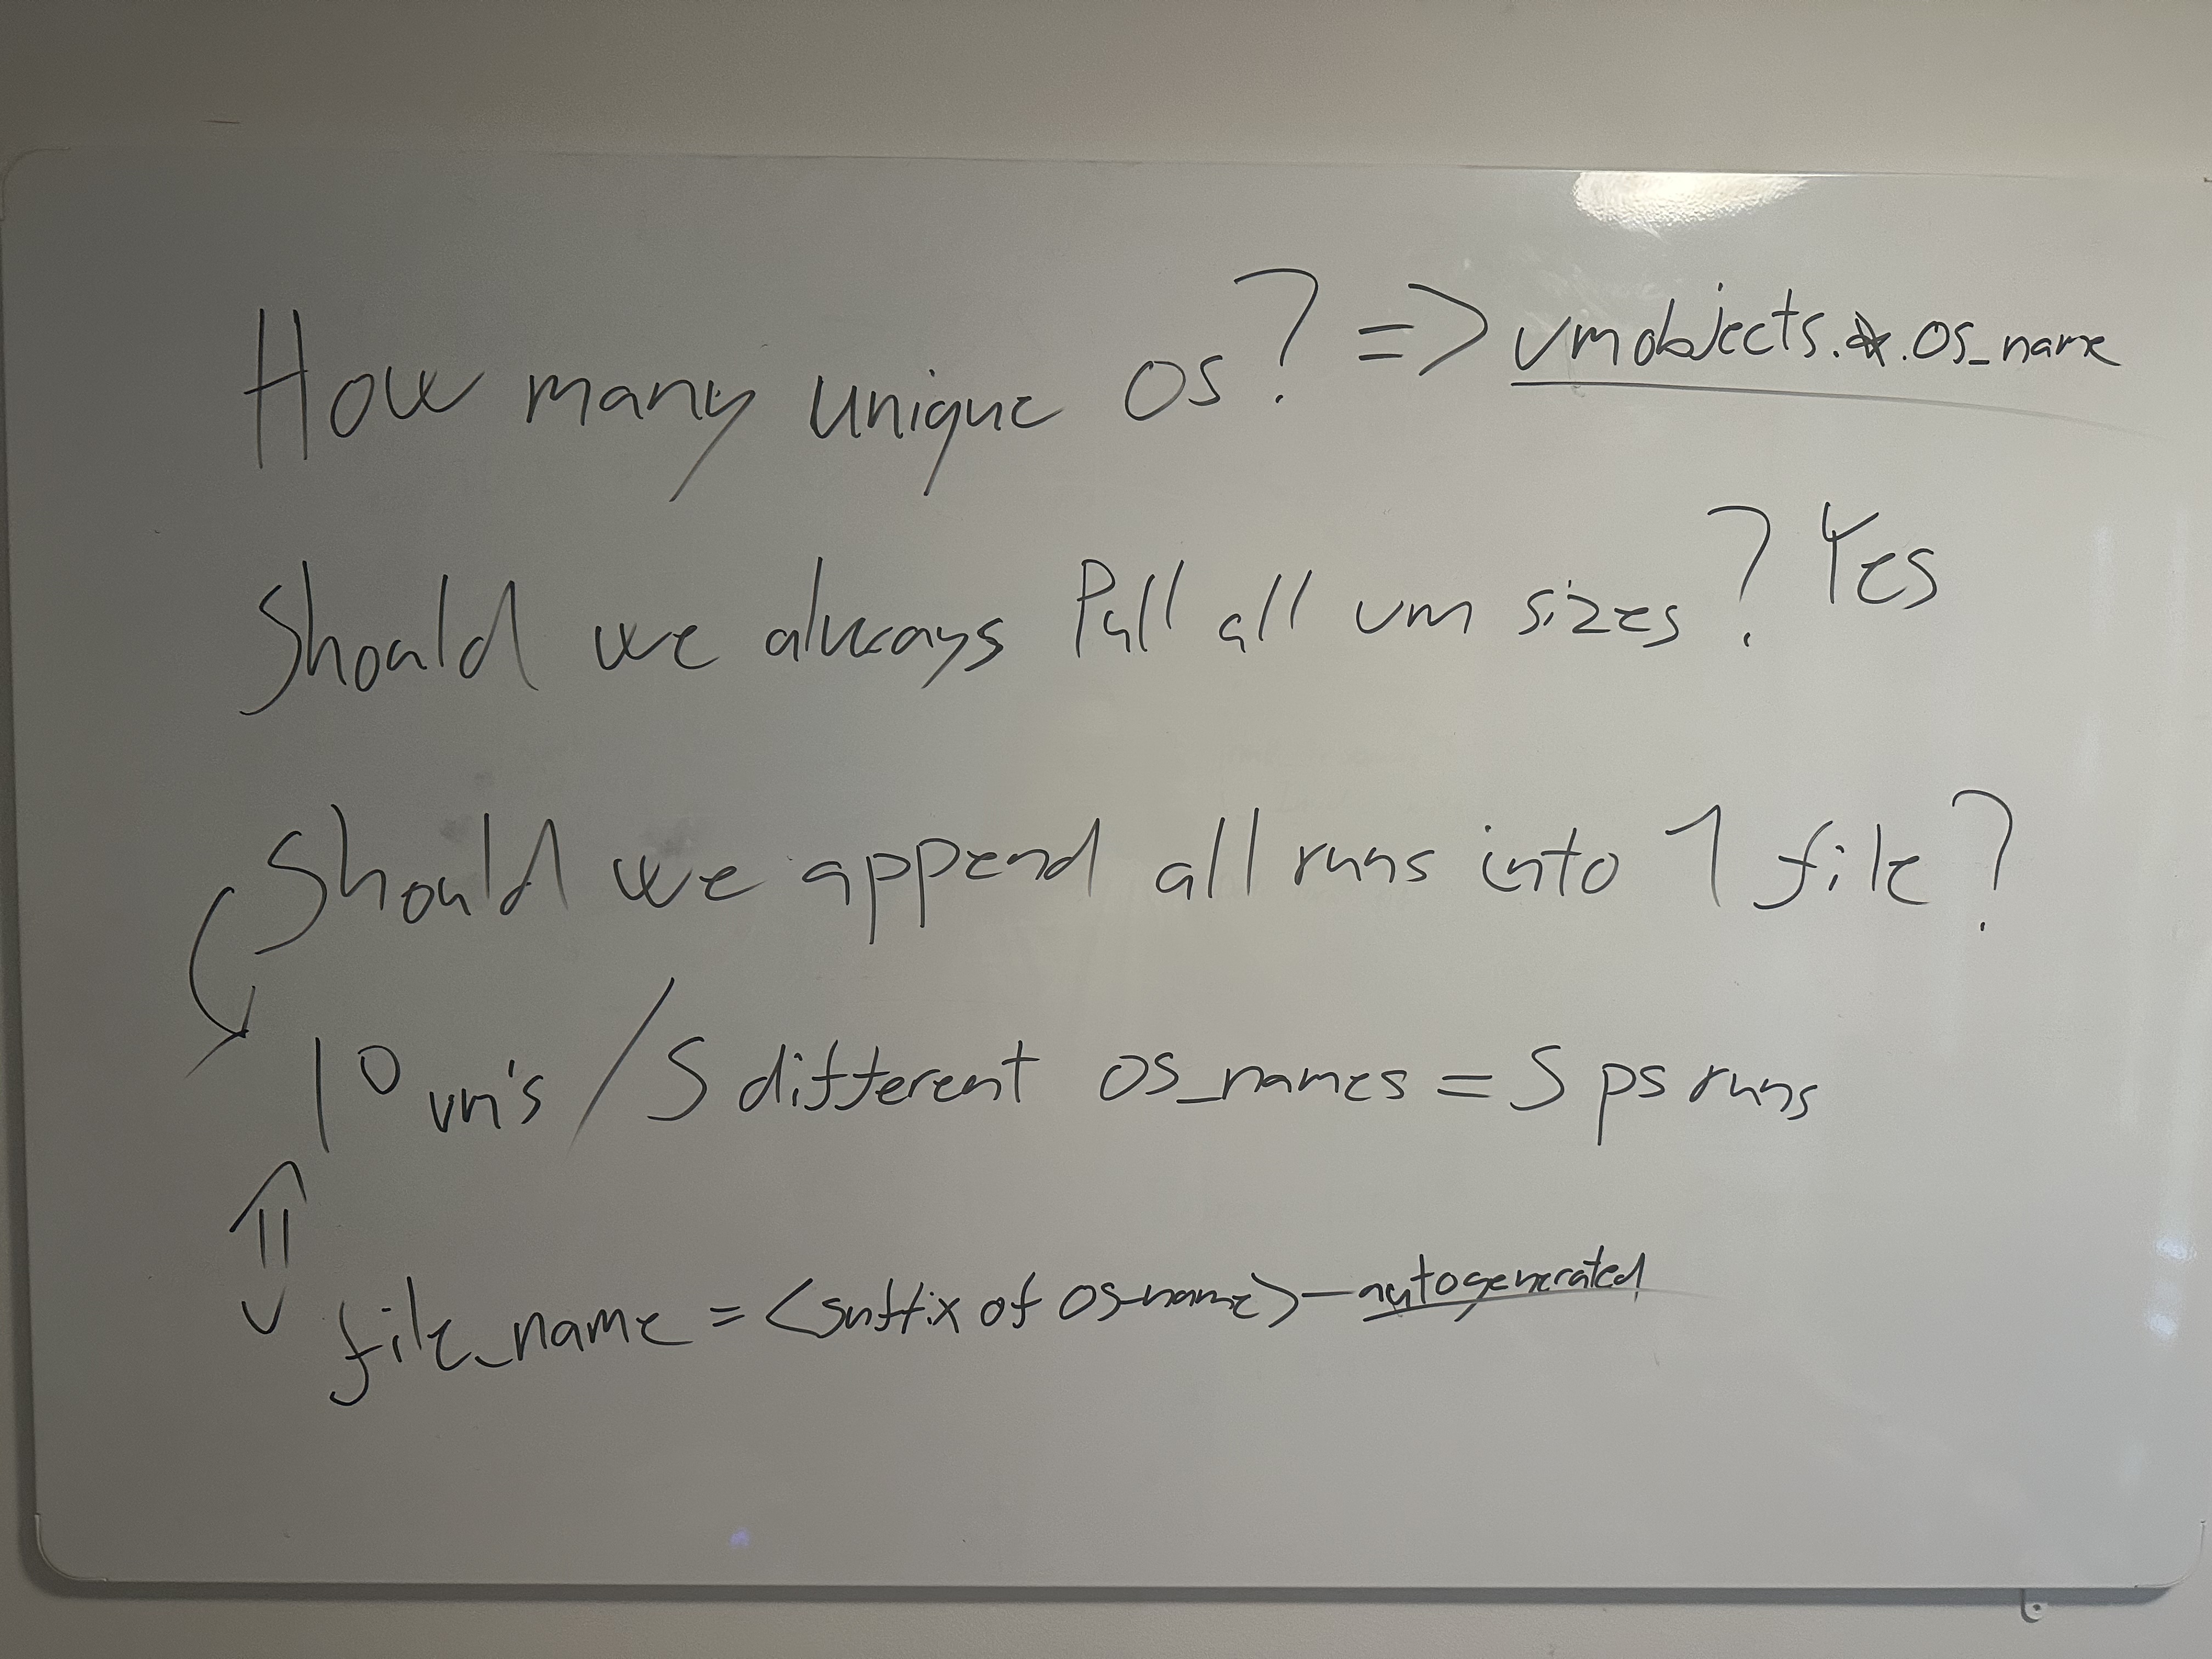 How many unique OS? => vmobjects.*.os_name
Should we always Pull all vm sizes? Yes
Should we append all runs into 1 file?
10 vm's / 5 different os_names = 5 ps runs
file_name = <suffix of os-name>-autogenerated